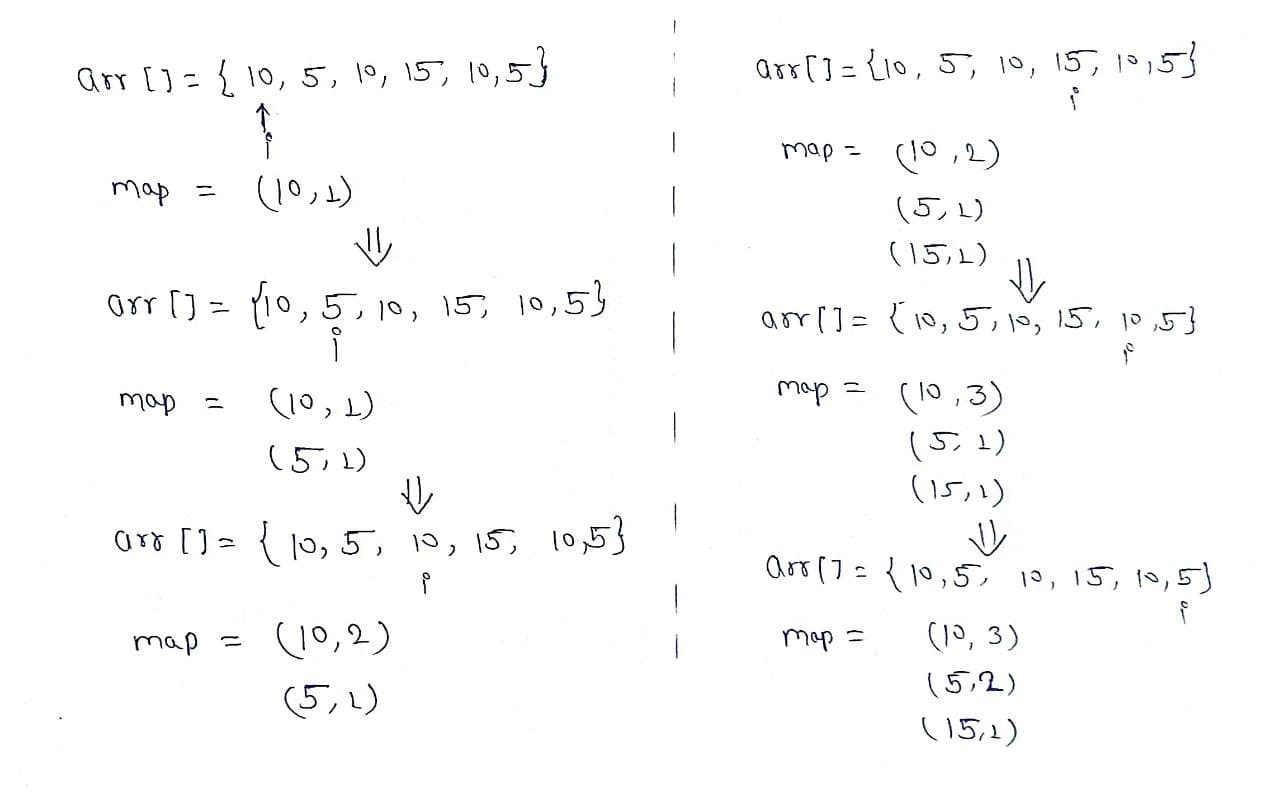 arr [] = { 10, 5, 10, 15, 10, 5}
↑
i
map = (10, 1)
⇓
arr [] = {10, 5, 10, 15, 10, 5}
i
map = (10, 1)
(5, 1)
⇓
arr [] = { 10, 5, 10, 15, 10, 5}
i
map = (10, 2)
(5, 1)
arr [] = {10, 5, 10, 15, 10, 5}
i
map = (10, 2)
(5, 1)
(15, 1)
⇓
arr [] = { 10, 5, 10, 15, 10, 5}
i
map = (10, 3)
(5, 1)
(15, 1)
⇓
arr [] = { 10, 5, 10, 15, 10, 5}
i
map = (10, 3)
(5, 2)
(15, 1)